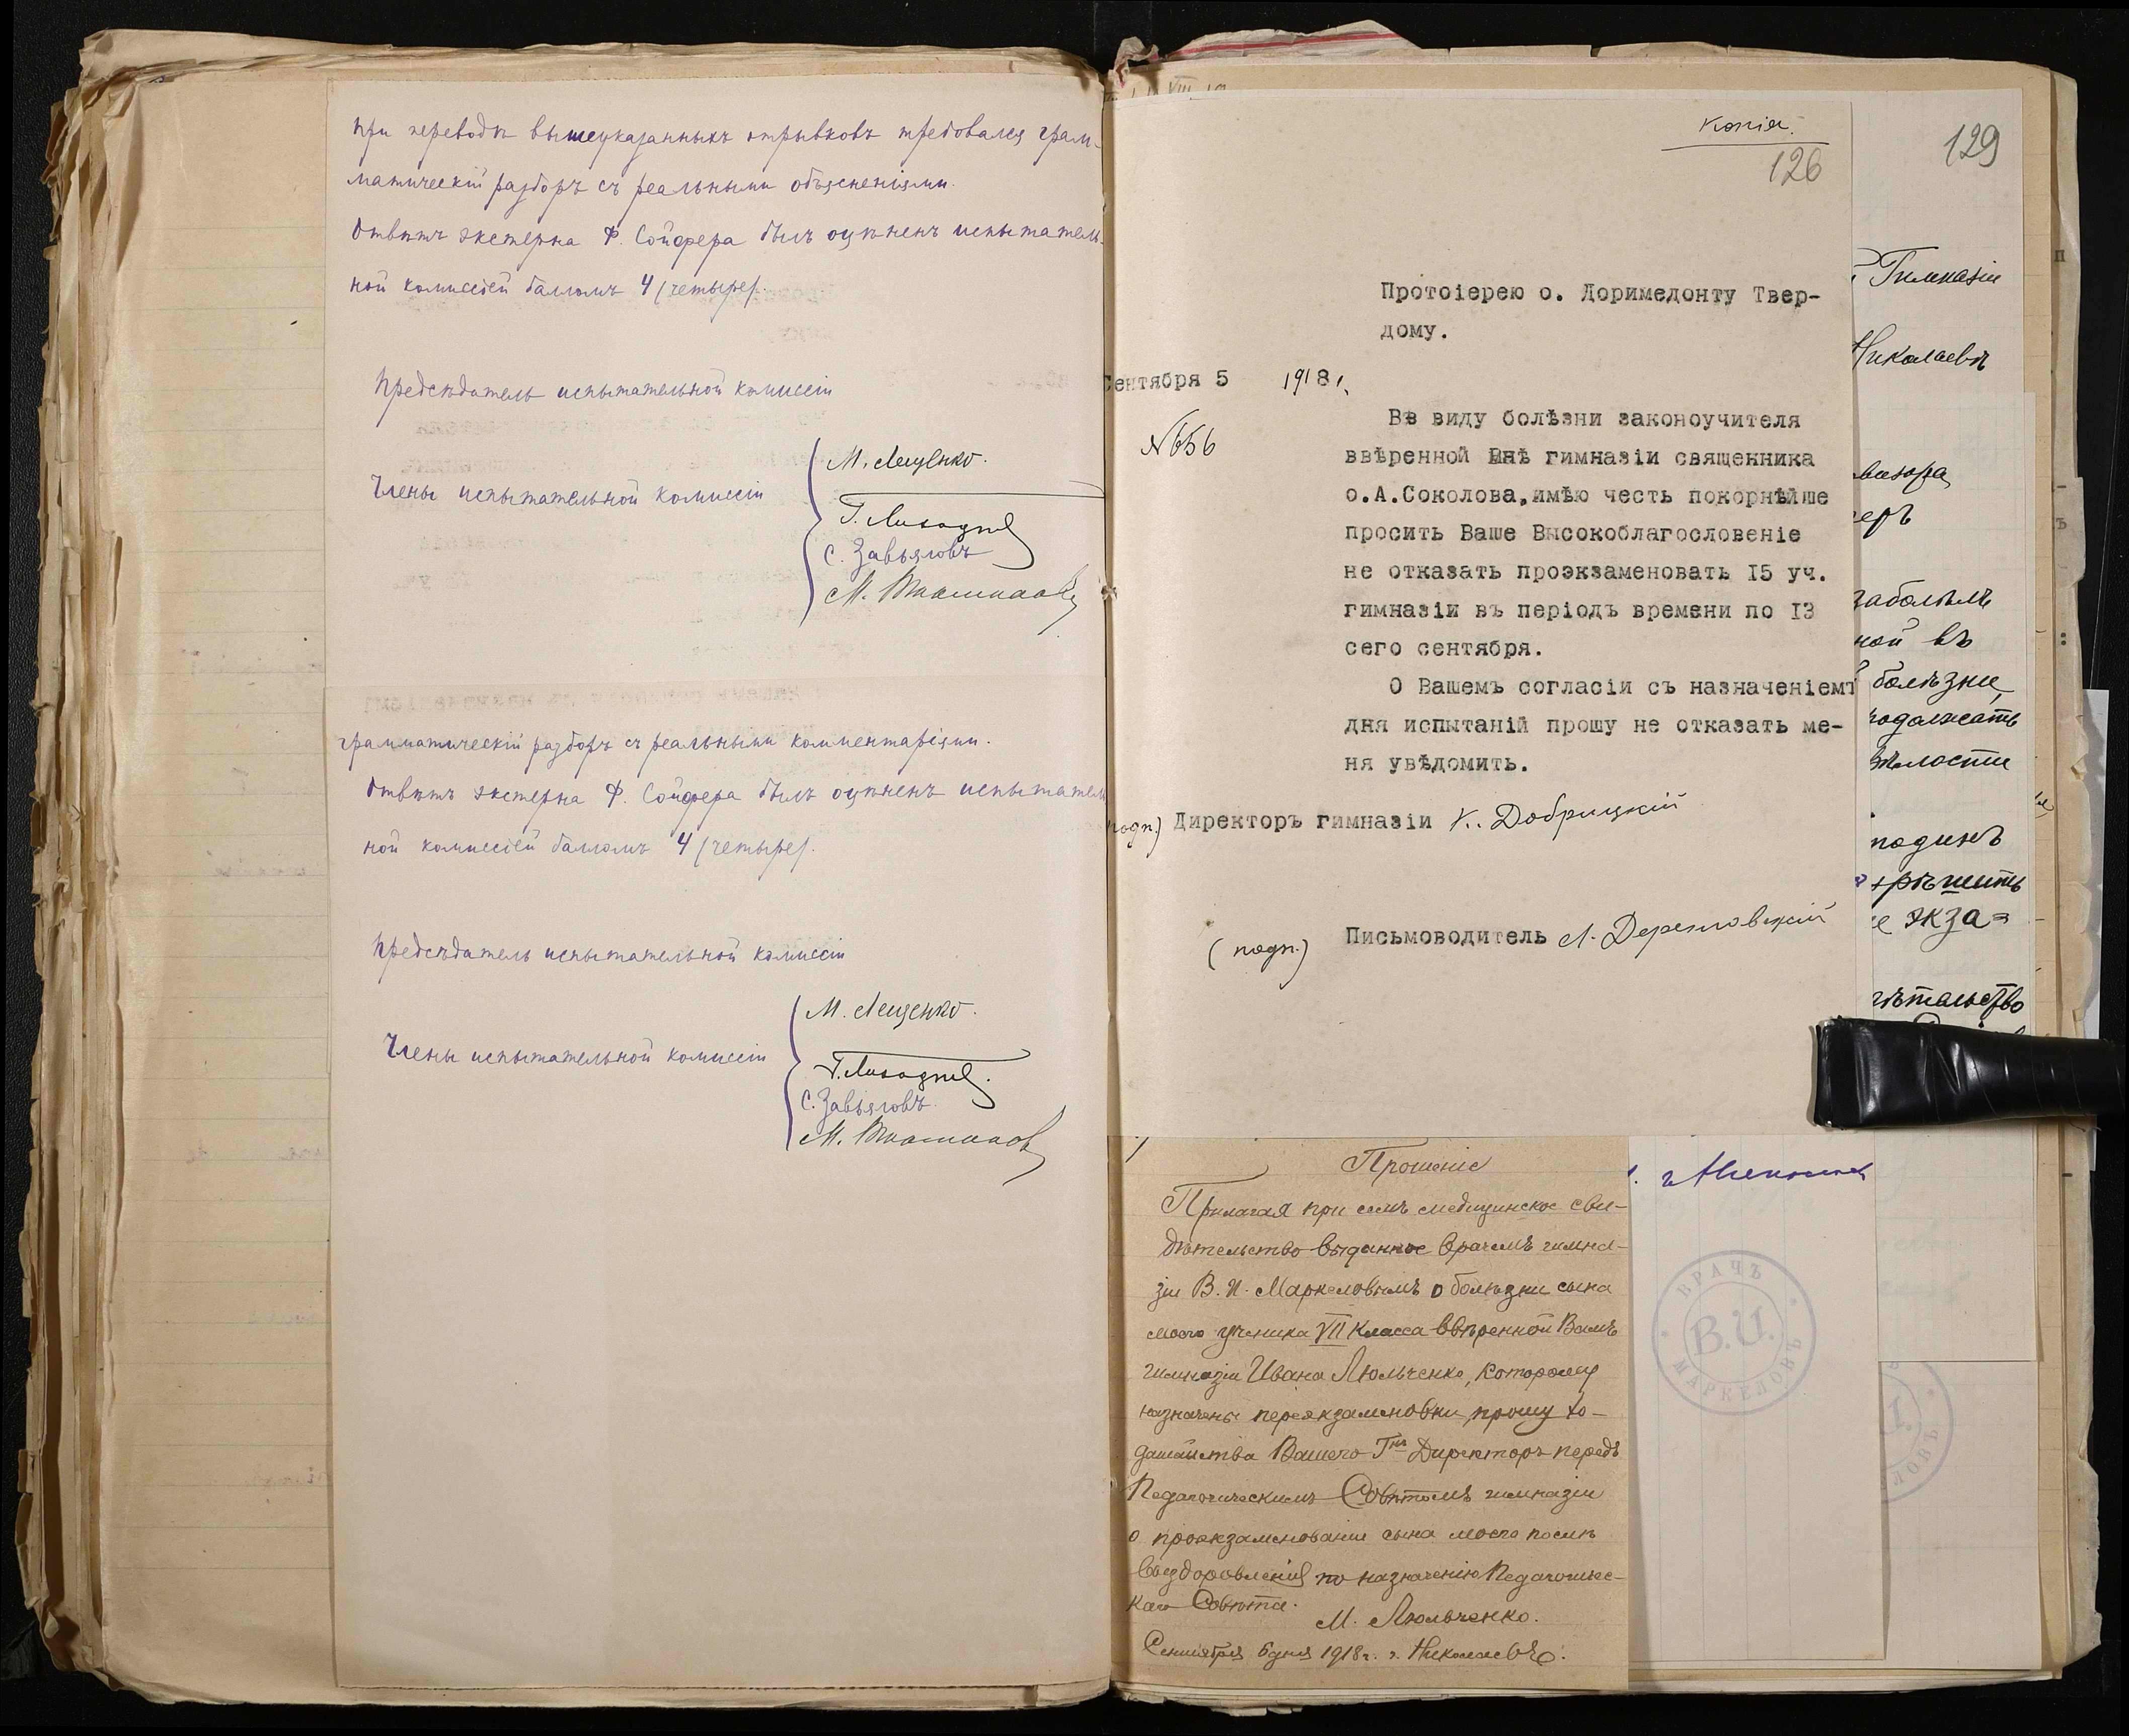 при переводѣ вышеуказанныхъ отрывковъ требовался грам-
матическій разборъ съ реальными объясненіями.
Отвѣтъ экстерна Ф. Сойфера былъ оцѣненъ испытатель-
ной комиссіей балломъ 4 (четыре).
Предсѣдатель испытательной комиссіи
М. Лещенко.
Члены испытательной комиссіи
С. Завьяловъ
грамматическій разборъ съ реальными комментаріями.
Отвѣтъ экстерна Ф. Сойфера былъ оцѣненъ испытатель
ной комиссіей балломъ 4 (четыре).
Предсѣдатель испытательной комиссіи
М. Лещенко.
Члены испытательной комиссіи
С. Завьяловъ.
Копія.
126
Протоіерею о. Доримедонту Твер-
дому.
Сентября 5 1918 г.
№656
Въ виду болѣзни законоучителя
ввѣренной мнѣ гимназіи священника
о.А.Соколова, имѣю честь покорнѣйше
просить Ваше Высокоблагословеніе
не отказать проэкзаменовать I5 уч.
гимназіи въ періодъ времени по I3
сего сентября.
О Вашемъ согласіи съ назначеніемъ
дня испытаній прошу не отказать ме-
ня увѣдомить.
подп.) Директоръ гимназіи К. Добрицкій
(подп.) Письмоводитель
Прошеніе
Прилагая при семъ медицинское сви-
дѣтельство выданное врачемъ гимна-
зіи В. И. Маркеловымъ о болѣзни сына
моего ученика VII класса ввѣренной Вамъ
гимназіи Ивана Люльченко, которому
назначены переэкзаменовки, прошу хо-
датайства Вашего Гнъ Директоръ передъ
Педагогическимъ Совѣтомъ гимназіи
о проэкзаменованіи сына моего послѣ
выздоровленія по назначенію Педагогичес-
каго Совѣта.
М. Люльченко.
Сентября 6 дня 1918 г. г. Николаевъ.
ВРАЧЪ
В.И.
МАРКЕЛОВЪ
129
Гимназіи
Николаевѣ
еръ
заболѣлъ
ной въ
болѣзни,
одолжать
ѣлости
подинъ
рѣшить
е экза=
ѣтельство